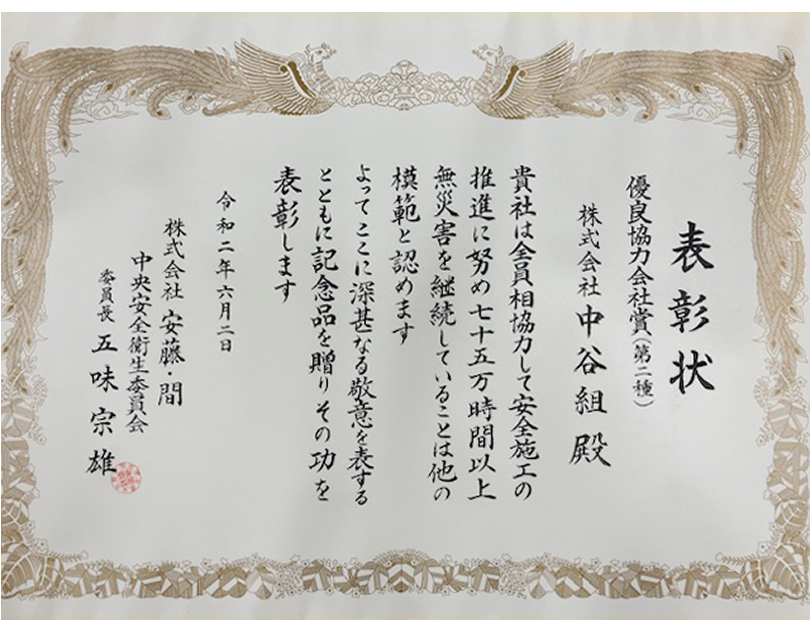 表彰状
優良協力会社賞(第二種)
株式会社 中谷組 殿
貴社は全員相協力して安全施工の
推進に努め七十五万時間以上
無災害を継続していることは他の
模範と認めます
よってここに深甚なる敬意を表する
とともに記念品を贈りその功を
表彰します
令和二年六月二日
株式会社 安藤・間
中央安全衛生委員会
委員長 五味宗雄